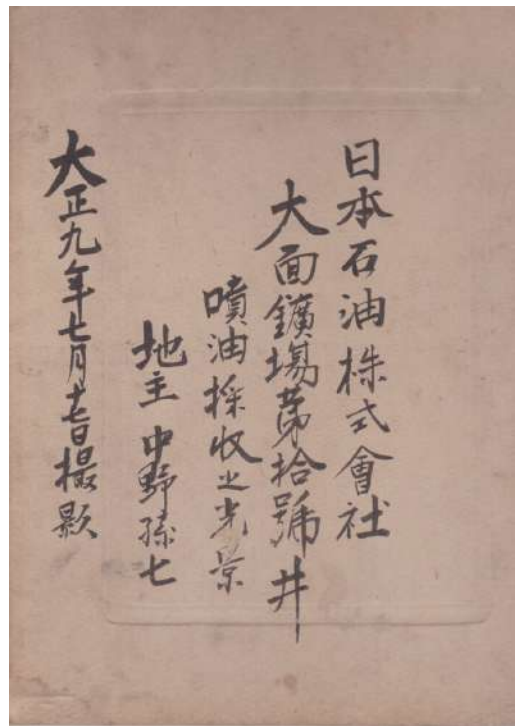 日本石油株式會社
大面鑛場第拾號井
噴油採收之光景
地主 中野孫七
大正九年七月十七日撮影